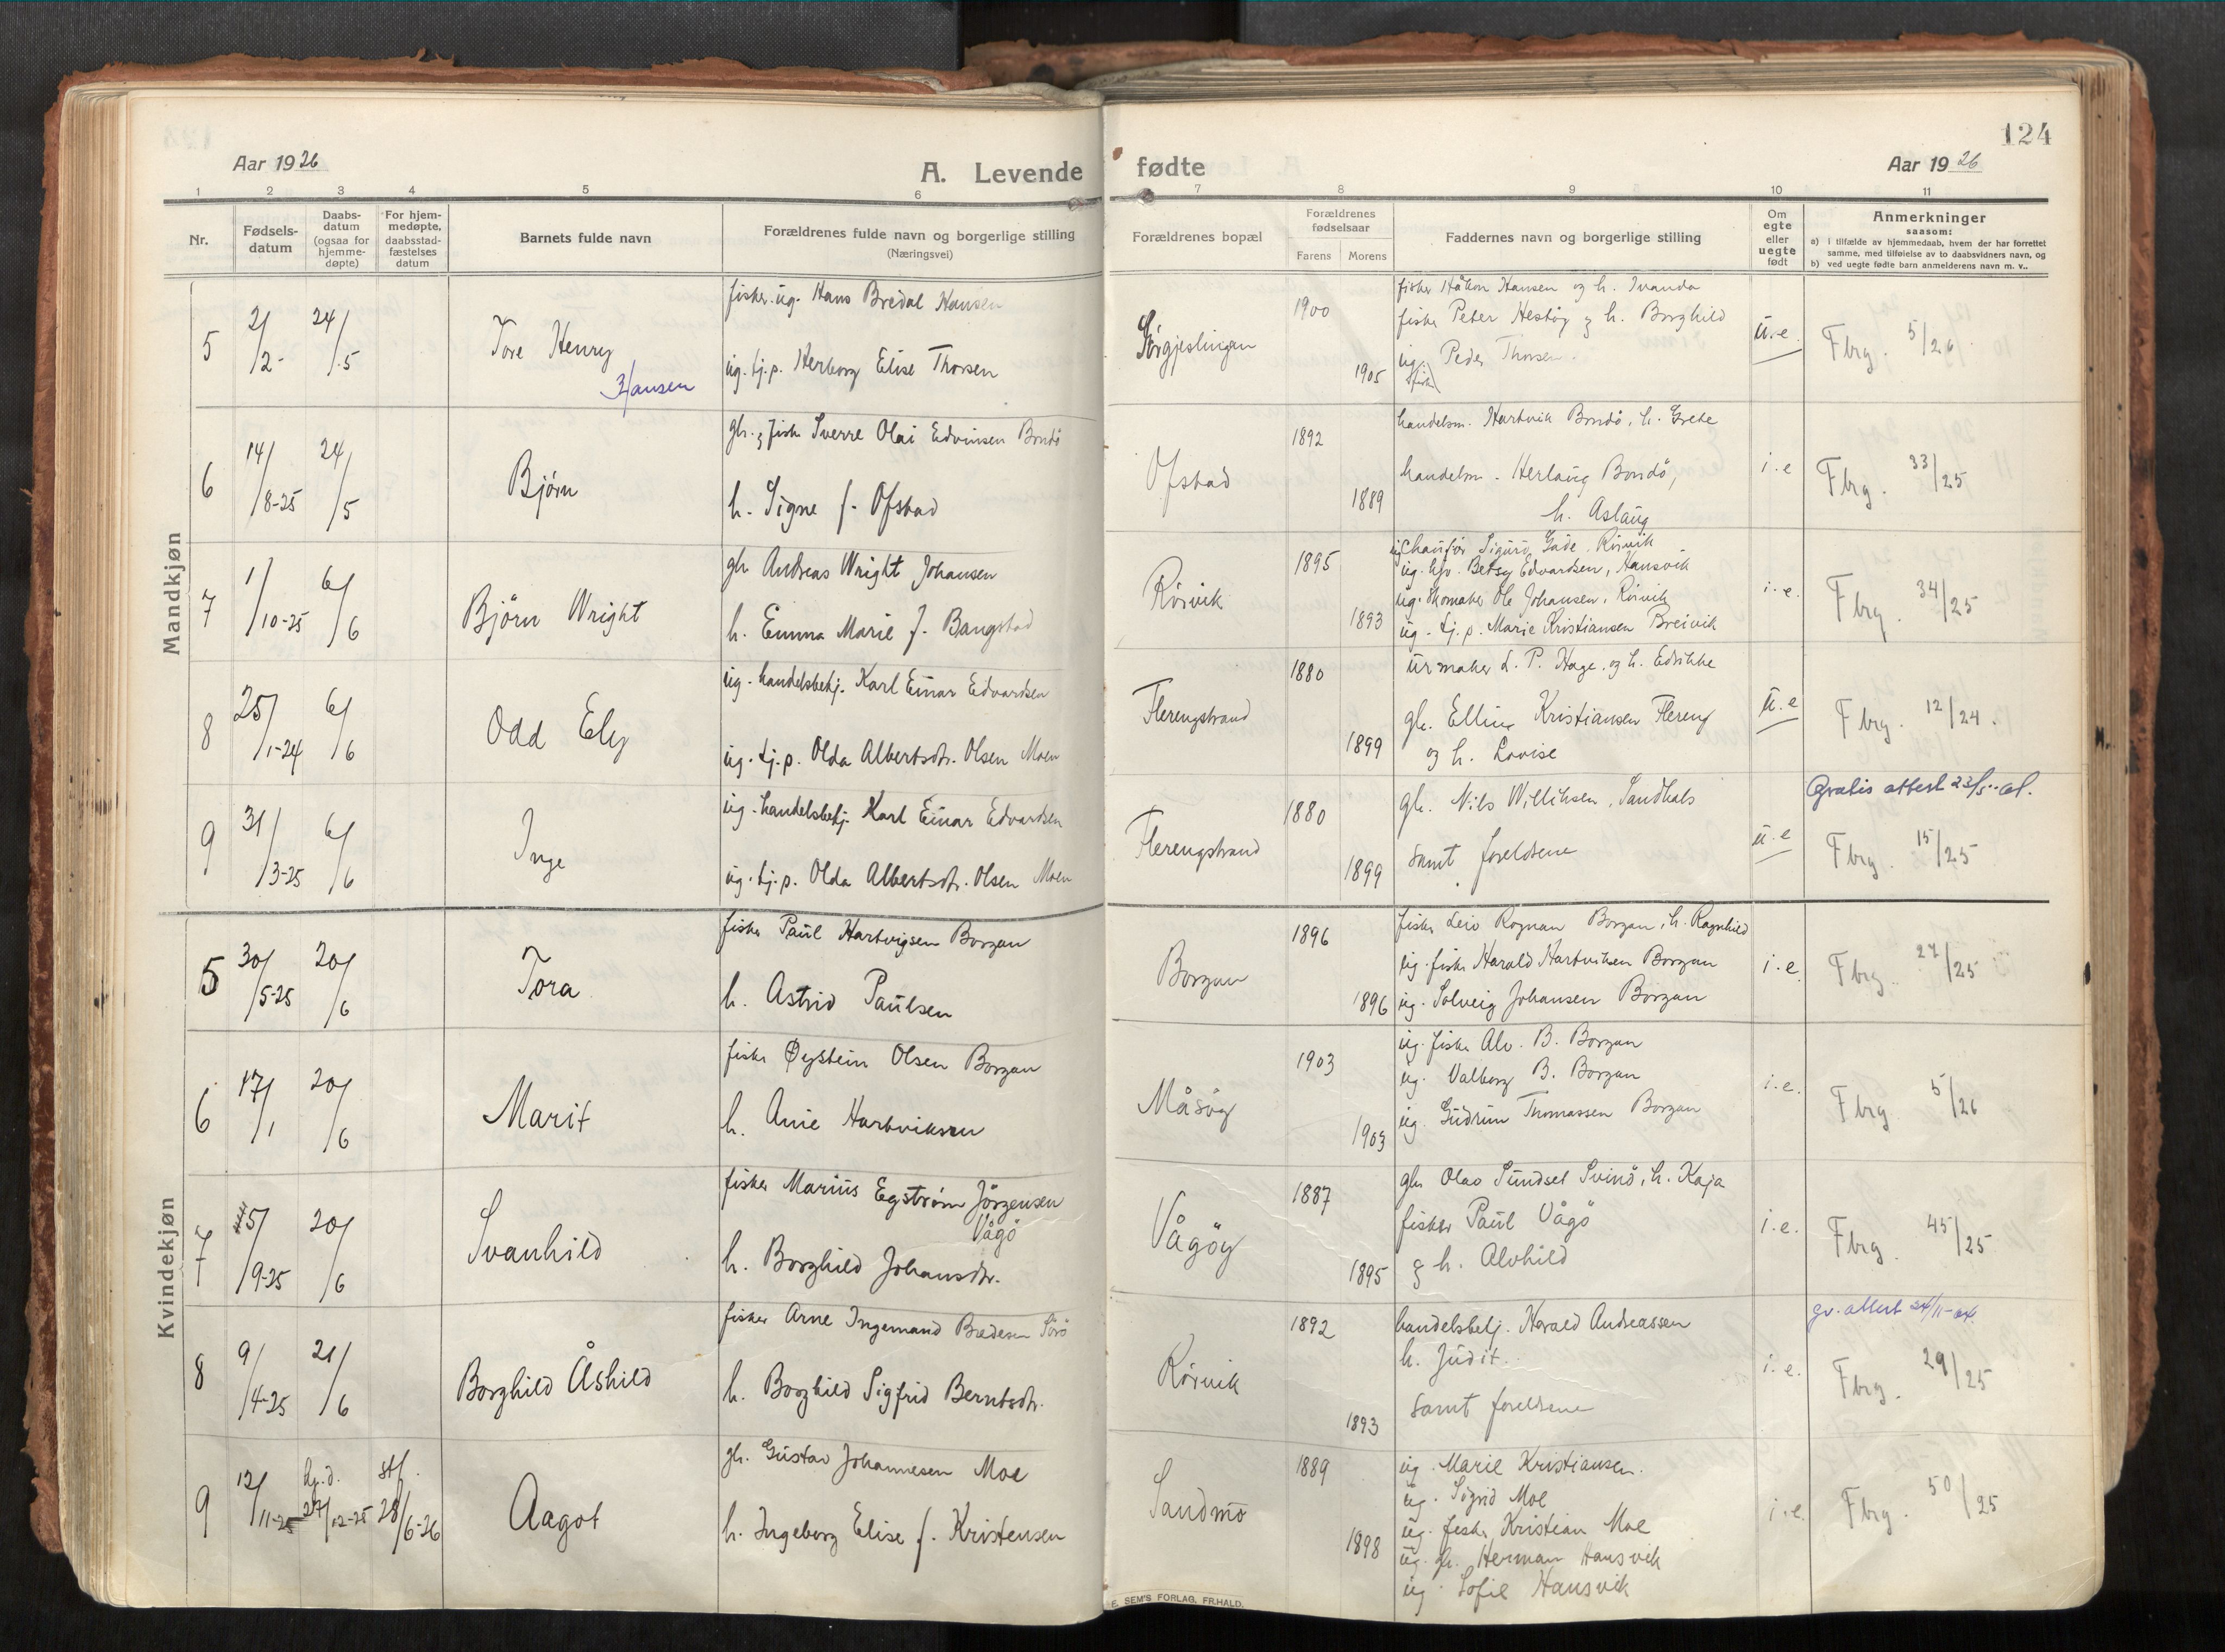 124
Aar 1926
A. Levende
fødte
Aar 1926
1 2 3 4 5 6 7 8 9 10 11
Nr.
Fødsels-
datum
Daabs-
datum
(ogsaa for
hjemme-
døpte)
For hjem-
medøpte,
daabsstad-
fæstelses
datum
Barnets fulde navn
Forældrenes fulde navn og borgerlige stilling
(Næringsvei)
Forældrenes bopæl
Forældrenes
fødselsaar
Farens
Morens
Faddernes navn og borgerlige stilling
Om
egte
eller
uegte
født
Anmerkninger
saasom:
a) i tilfælde av hjemmedaab, hvem der har forrettet
samme, med tilføielse av to daabsvidners navn, og
b) ved uegte fødte barn anmelderens navn m. v..
Mandkjøn
5
2/2-
24/5
Tore Henry
Hansen
fisker. ug. Hans Bredal Hansen
ug. tj.p. Herborg Elise Thorsen
Sørgjeslingan
1900
1905
fisker Håkon Hansen og h. Ivanda
fisker Peter Hestøy og h. Borghild
ug. Peder Thorsen.
fisker
u.e.
Fbrg. 5/26
6
14/8-25
24/5
Bjørn
gb. og fisker Sverre Olai Edvinsen Bondø
h. Signe f. Ofstad
Ofstad
1892
1889
handelsm. Hartvik Bondø, h. Grete
handelsm. Herlaug Bondø,
h. Aslaug
i.e
Fbrg. 33/25
7
1/10-25
6/6
Bjørn Wright
gb. Andreas Wright Johansen
h. Emma Marie f. Bangstad
Rørvik
1895
1893
ug. chaufør Sigurd Gåde. Rørvik
ug. Betsy Edvardsen, Hansvik
ug. Skomaker Ole Johansen, Rørvik
ug. tj.p. Marie Kristiansen Breivik
i.e.
Fbrg. 34/25
8
25/1-24
6/6
Odd Ely
ug. handelsbetj. Karl Einar Edvardsen
ug. tj.p. Olda Albertsdtr. Olsen Moen
Flerengstrand
1880
1899
urmaker L. P. Hage, og h. Edrikke
gb. Elling Kristiansen Flereng
og h. Lovise
u.e
Fbrg. 12/24.
9
31/3-25
6/6
Inge
ug. handelsbetj. Karl Einar Edvardsen
ug. tj.p. Olda Albertsdtr. Olsen Moen
Flerengstrand
1880
1899
gb. Nils Williksen, Sandhals
samt foreldrene
u.e
Gratis attest 23/5
Fbrg. 15/25
Kvindekjøn
5
30/5-25
20/6
Tora
fisker Paul Hartvigsen Borgan
h. Astrid Paulsen
Borgan
1896
1896
fisker Leiv Rognan Borgan, h. Ragnhild
ug. fisker Harald Hartviksen Borgan
ug. Solveig Johansen Borgan
i.e
Fbrg. 27/25
6
17/1
20/6
Marit
fisker Øystein Olsen Borgan
h. Anie Hartviksen
Måsøy
1903
1903
ug. fisker Alv. B. Borgan
ug. Valborg B. Borgan
ug. Gudrun Thomassen Borgan
i.e.
Fbrg 5/26
7
5/9-25
20/6
Svanhild
fisker Marius Egstrøm Jørgensen
Vågø
h. Borghild Johansdtr.
Vågøy
1887
1895
gb. Olav Sundset Svinø, h. Kaja
fisker Paul Vågø
og h. Alvhild
i.e.
Fbrg. 45/25
8
9/4-25
21/6
Borghild Åshild
fisker Arne Ingemand Bredesen Sørø
h. Borghild Sigfrid Berntsdtr.
Rørvik
1892
1893
handelsbetj. Harald Andreassen
h. Judit.
samt foreldrene
i.e.
gr. attest 24/11
Fbrg. 29/25
9
12/11-25
hj.d.
27/12-25
stf.
28/6-26
Aagot
gb. Gustav Johannesen Moe
h. Ingeborg Elise f. Kristensen
Sandmo
1889
1898
ug. Marie Kristiansen.
ug. Sigrid Moe
ug. fisker Kristian Moe
ug. gb. Herman Hansvik
ug. Sofie Hansvik
i.e.
Fbrg. 50/25
E. SEM'S FORLAG, FR.HALD.